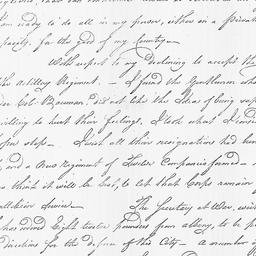 am ready to do all in my power, either in a private
capacity, for the good of my Country —
With respect to my Declining to accept the
the Artillery Regiment. — I found the Gentlemen who
Col: Bauman, did not like the Idea of being
willing to hurt their feelings, I took what I
step — I wish all their resignations had been
and a New Regiment of Twelve Companies formed —
think it will be best, to let that Corps remain
The Secretary at War, wish
has moved Eight twelve pounders from albany, to be
Direction for the defence of this City — A number of